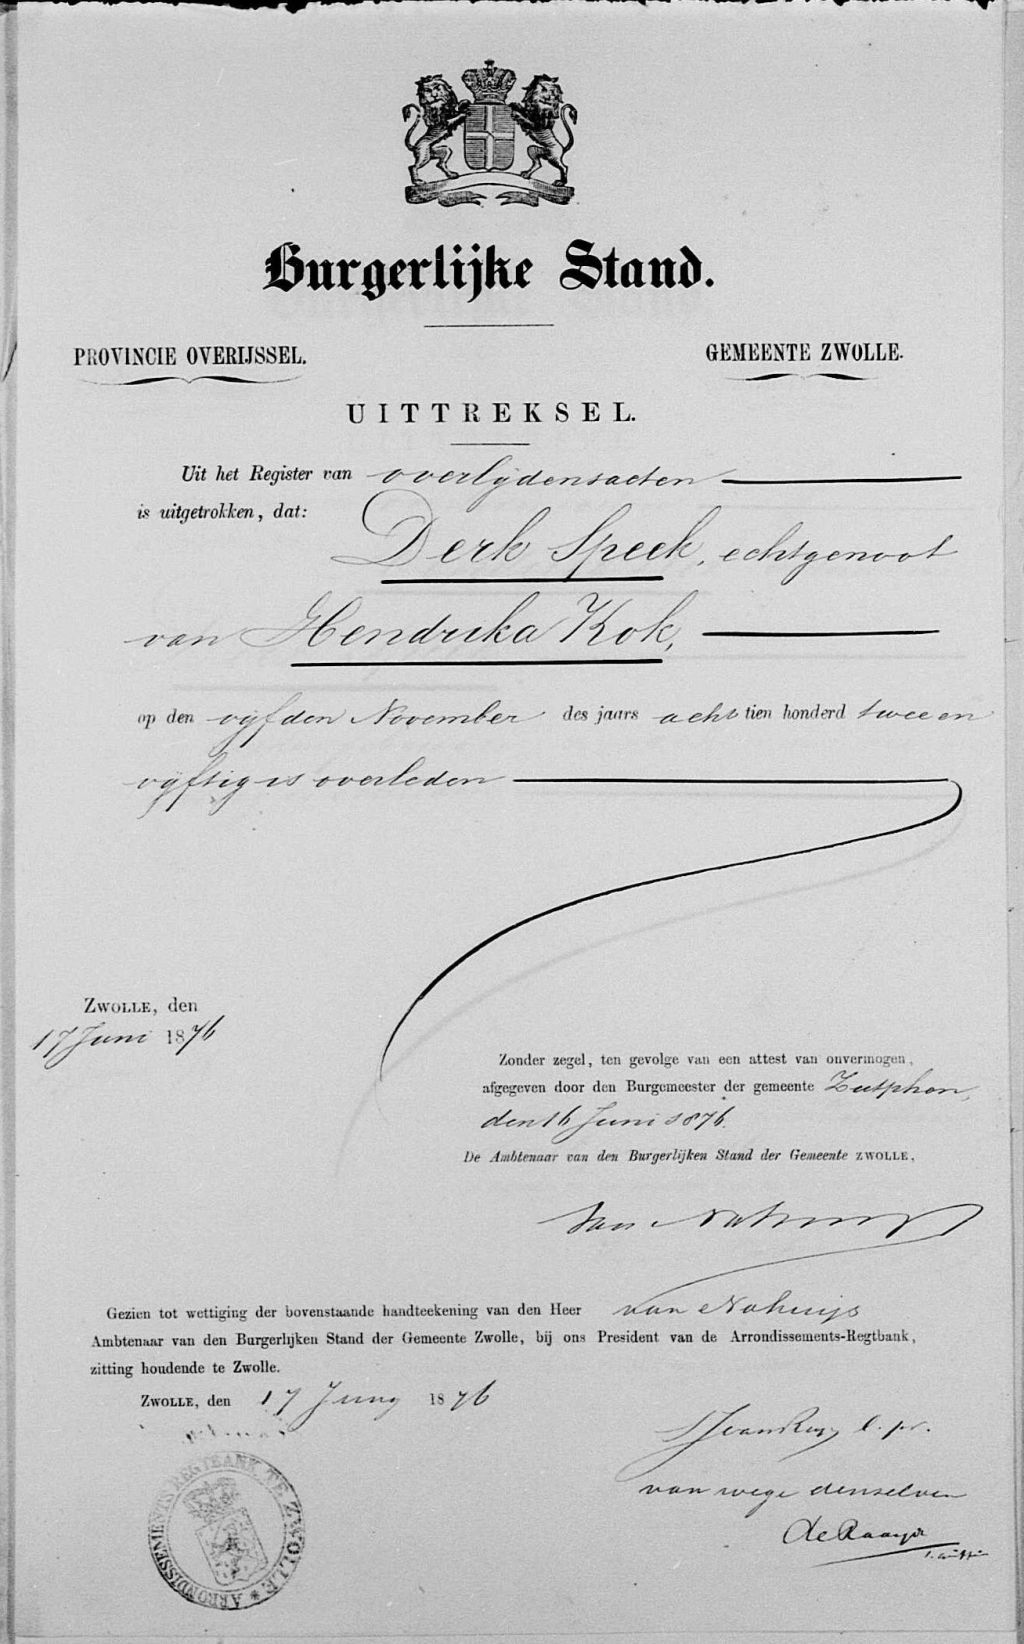 Burgerlijke Stand.
PROVINCIE OVERIJSSEL.
GEMEENTE ZWOLLE.
UITTREKSEL.
Uit het Register van overlijdensacten
is uitgetrokken, dat:
Derk Speek, echtgenoot
van Hendrika Kok,
op den vijfden November des jaars achttien honderd twee en
vijftig is overleden
ZWOLLE, den
17 Juni 1876
Zonder zegel, ten gevolge van een attest van onvermogen,
afgegeven door den Burgemeester der gemeente Zutphen,
den 16 Juni 1876.
De Ambtenaar van den Burgerlijken Stand der Gemeente ZWOLLE,
van Nahuijs
Gezien tot wettiging der bovenstaande handteekening van den Heer van Nahuijs
Ambtenaar van den Burgerlijken Stand der Gemeente Zwolle, bij ons President van de Arrondissements-Regtbank,
zitting houdende te Zwolle.
ZWOLLE, den 17 Juny 1876
van wege denselven
ARRONDISSEMENTS REGTBANK TE ZWOLLE